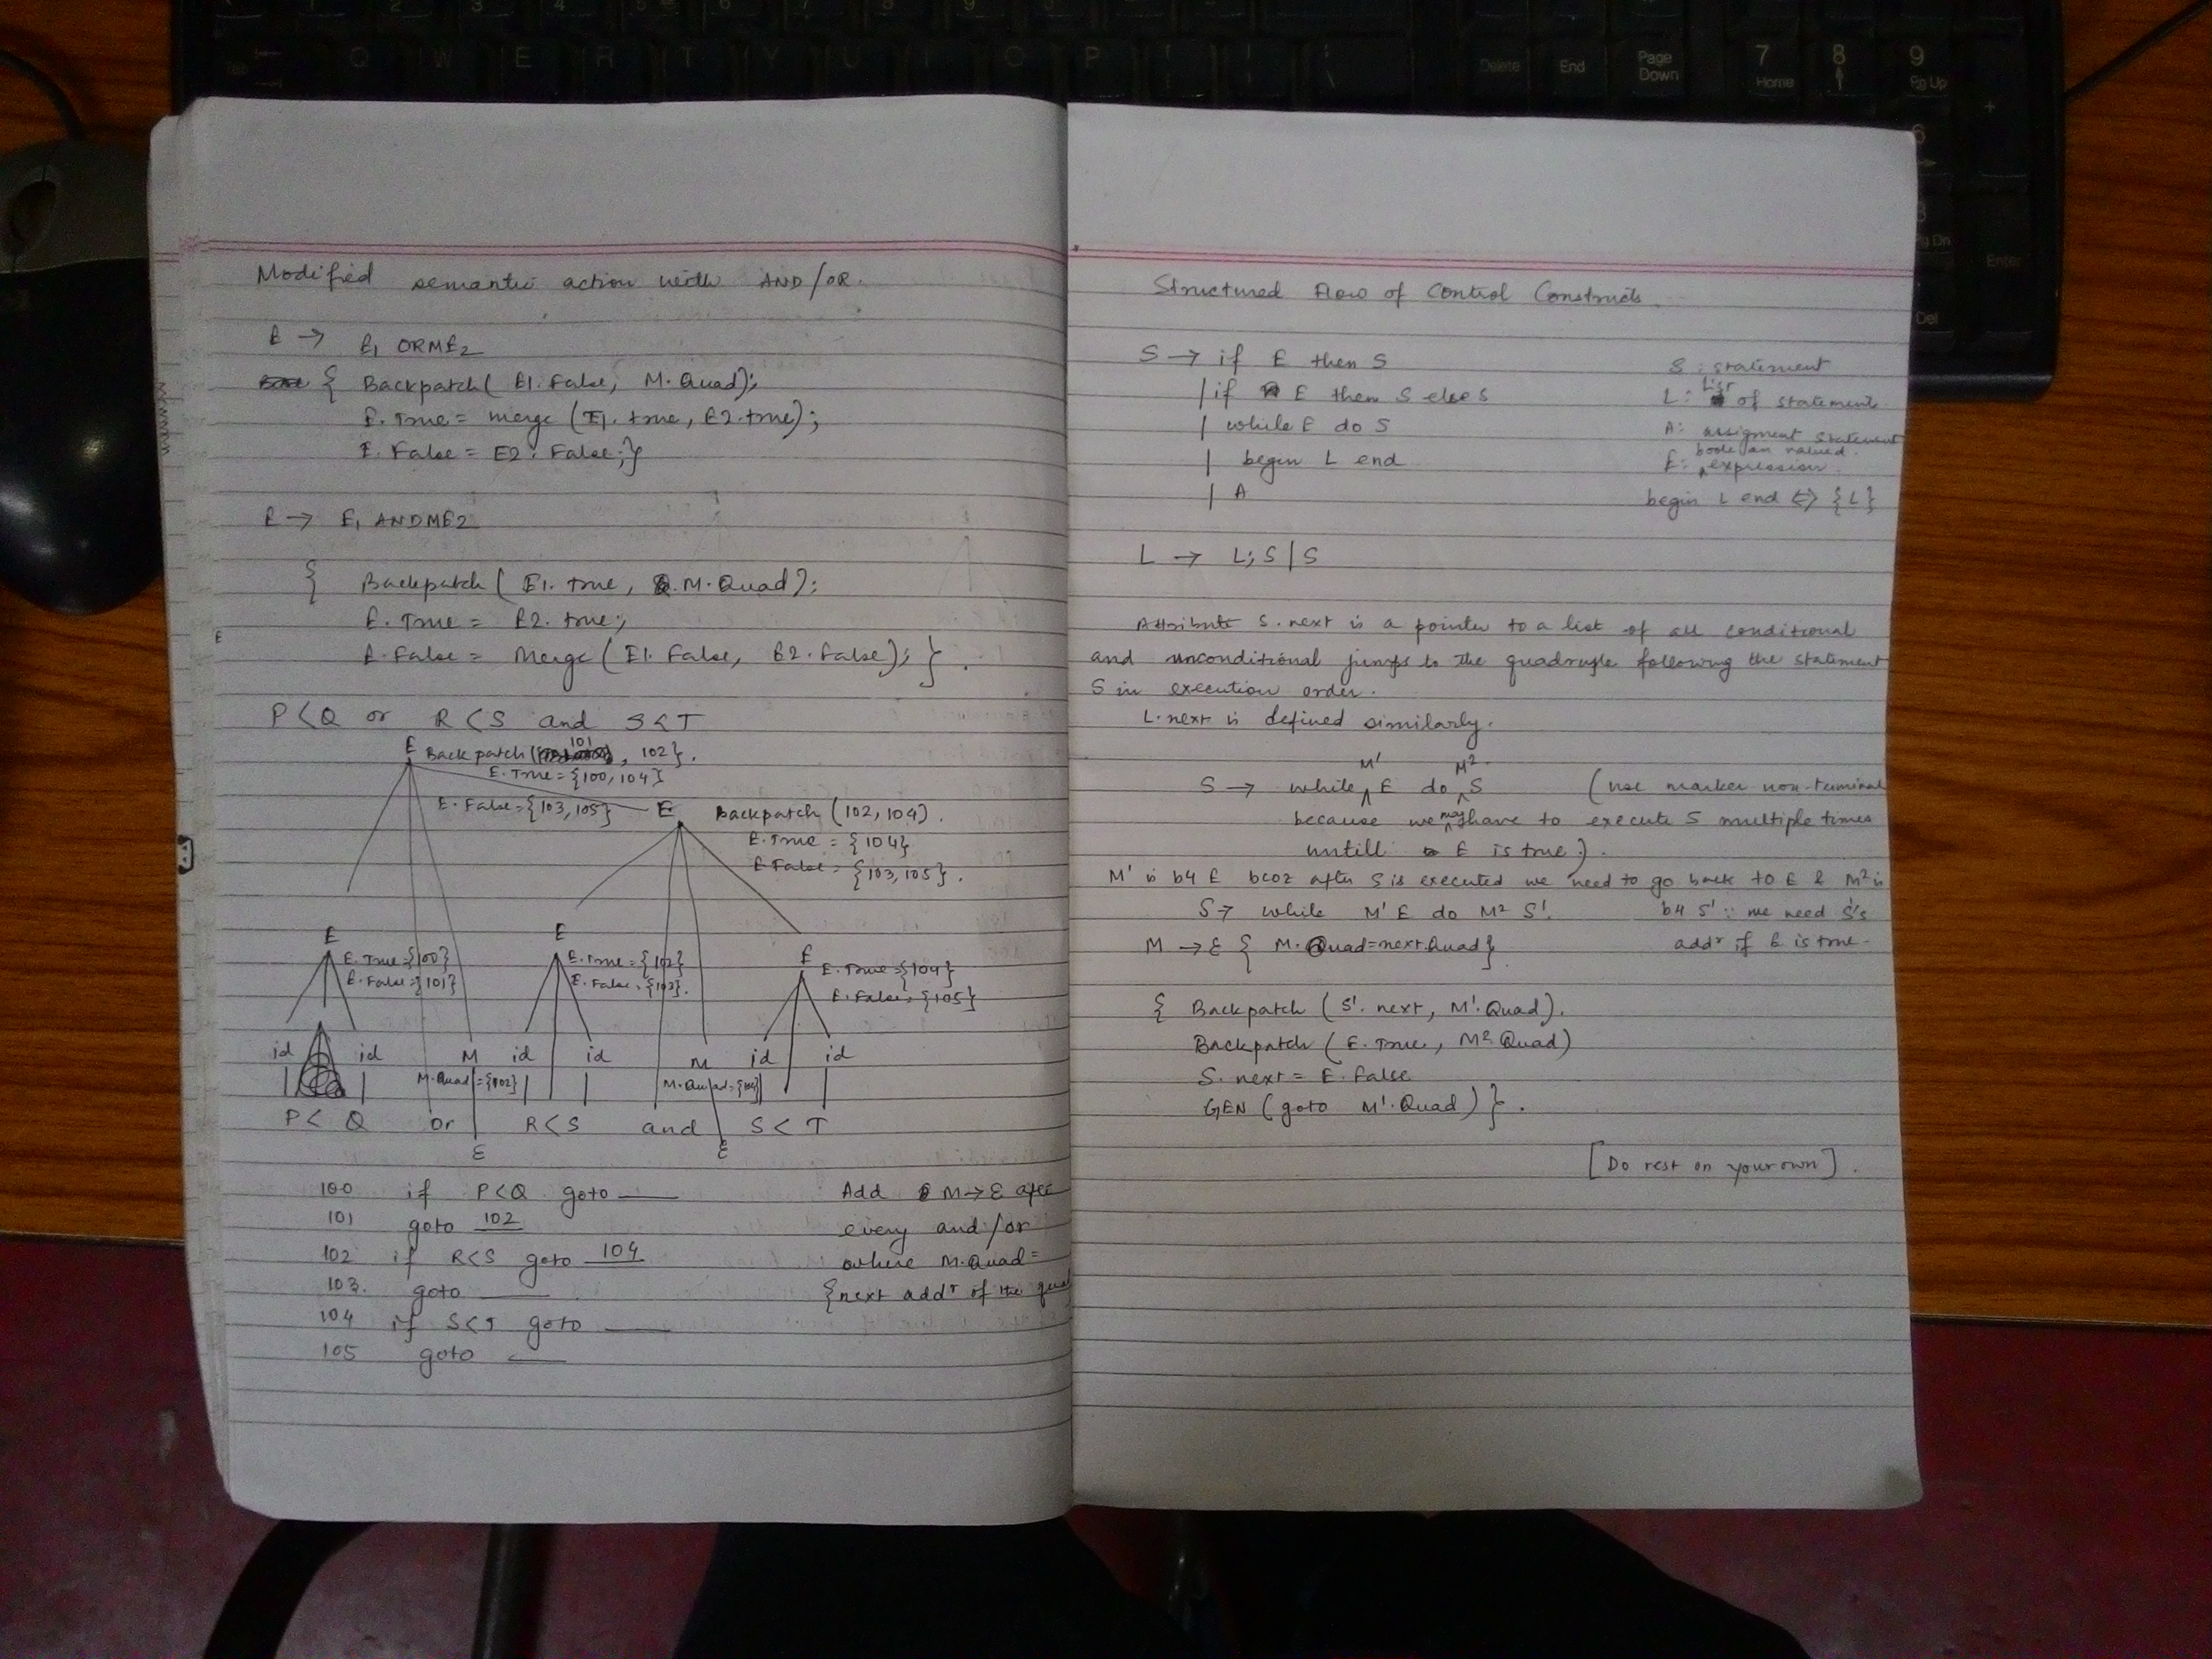 Modified semantic action with AND/OR.
E → E1 ORME2
{ Backpatch (E1.False, M.Quad);
E.True = merge (E1.true, E2.true);
E.False = E2.False;}
E → E1 ANDME2
{ Backpatch (E1.true, M.Quad);
E.True = E2.true;
E.False = Merge (E1.False, E2.False); }.
P < Q or R < S and S < T
E Backpatch ( 101, 102}.
E.True = {100, 104}
E.False = {103, 105} E
Backpatch (102, 104).
E.True = {104}
E.False = {103, 105}.
E E.True = {100}
E.False = {101}
E E.True = {102}
E.False = {103}.
E E.True = {104}
E.False = {105}
id id M id id M id id
M.Quad = {102} M.Quad = {104}
P < Q or R < S and S < T
ε ε
100 if P<Q goto ___
101 goto 102
102 if R<S goto 104
103. goto ___
104 if S<T goto ___
105 goto ___
Add M → ε after
every and/or
where M.Quad =
{next addr of the quad
Structured Flow of Control Constructs
S → if E then S
| if E then S else S
| while E do S
| begin L end
| A
S : statement
L : List of statement
A : assignment statement
E : boolean valued expression.
begin L end ⇔ { L }
L → L; S | S
Attribute S.next is a pointer to a list of all conditional
and unconditional jumps to the quadruple following the statement
S in execution order.
L.next is defined similarly.
S → while M1 E do M2 S (use marker non-terminal
because we may have to execute S multiple times
untill E is true).
M1 is b4 E bcoz after S is executed we need to go back to E & M2 is
S → while M1 E do M2 S1. b4 S1 ∵ we need S's
M → ε { M.Quad = next.Quad}. addr if E is true.
{ Backpatch (S1.next, M1.Quad).
Backpatch (E.True, M2.Quad)
S.next = E.False
GEN (goto M1.Quad) }.
[Do rest on your own].